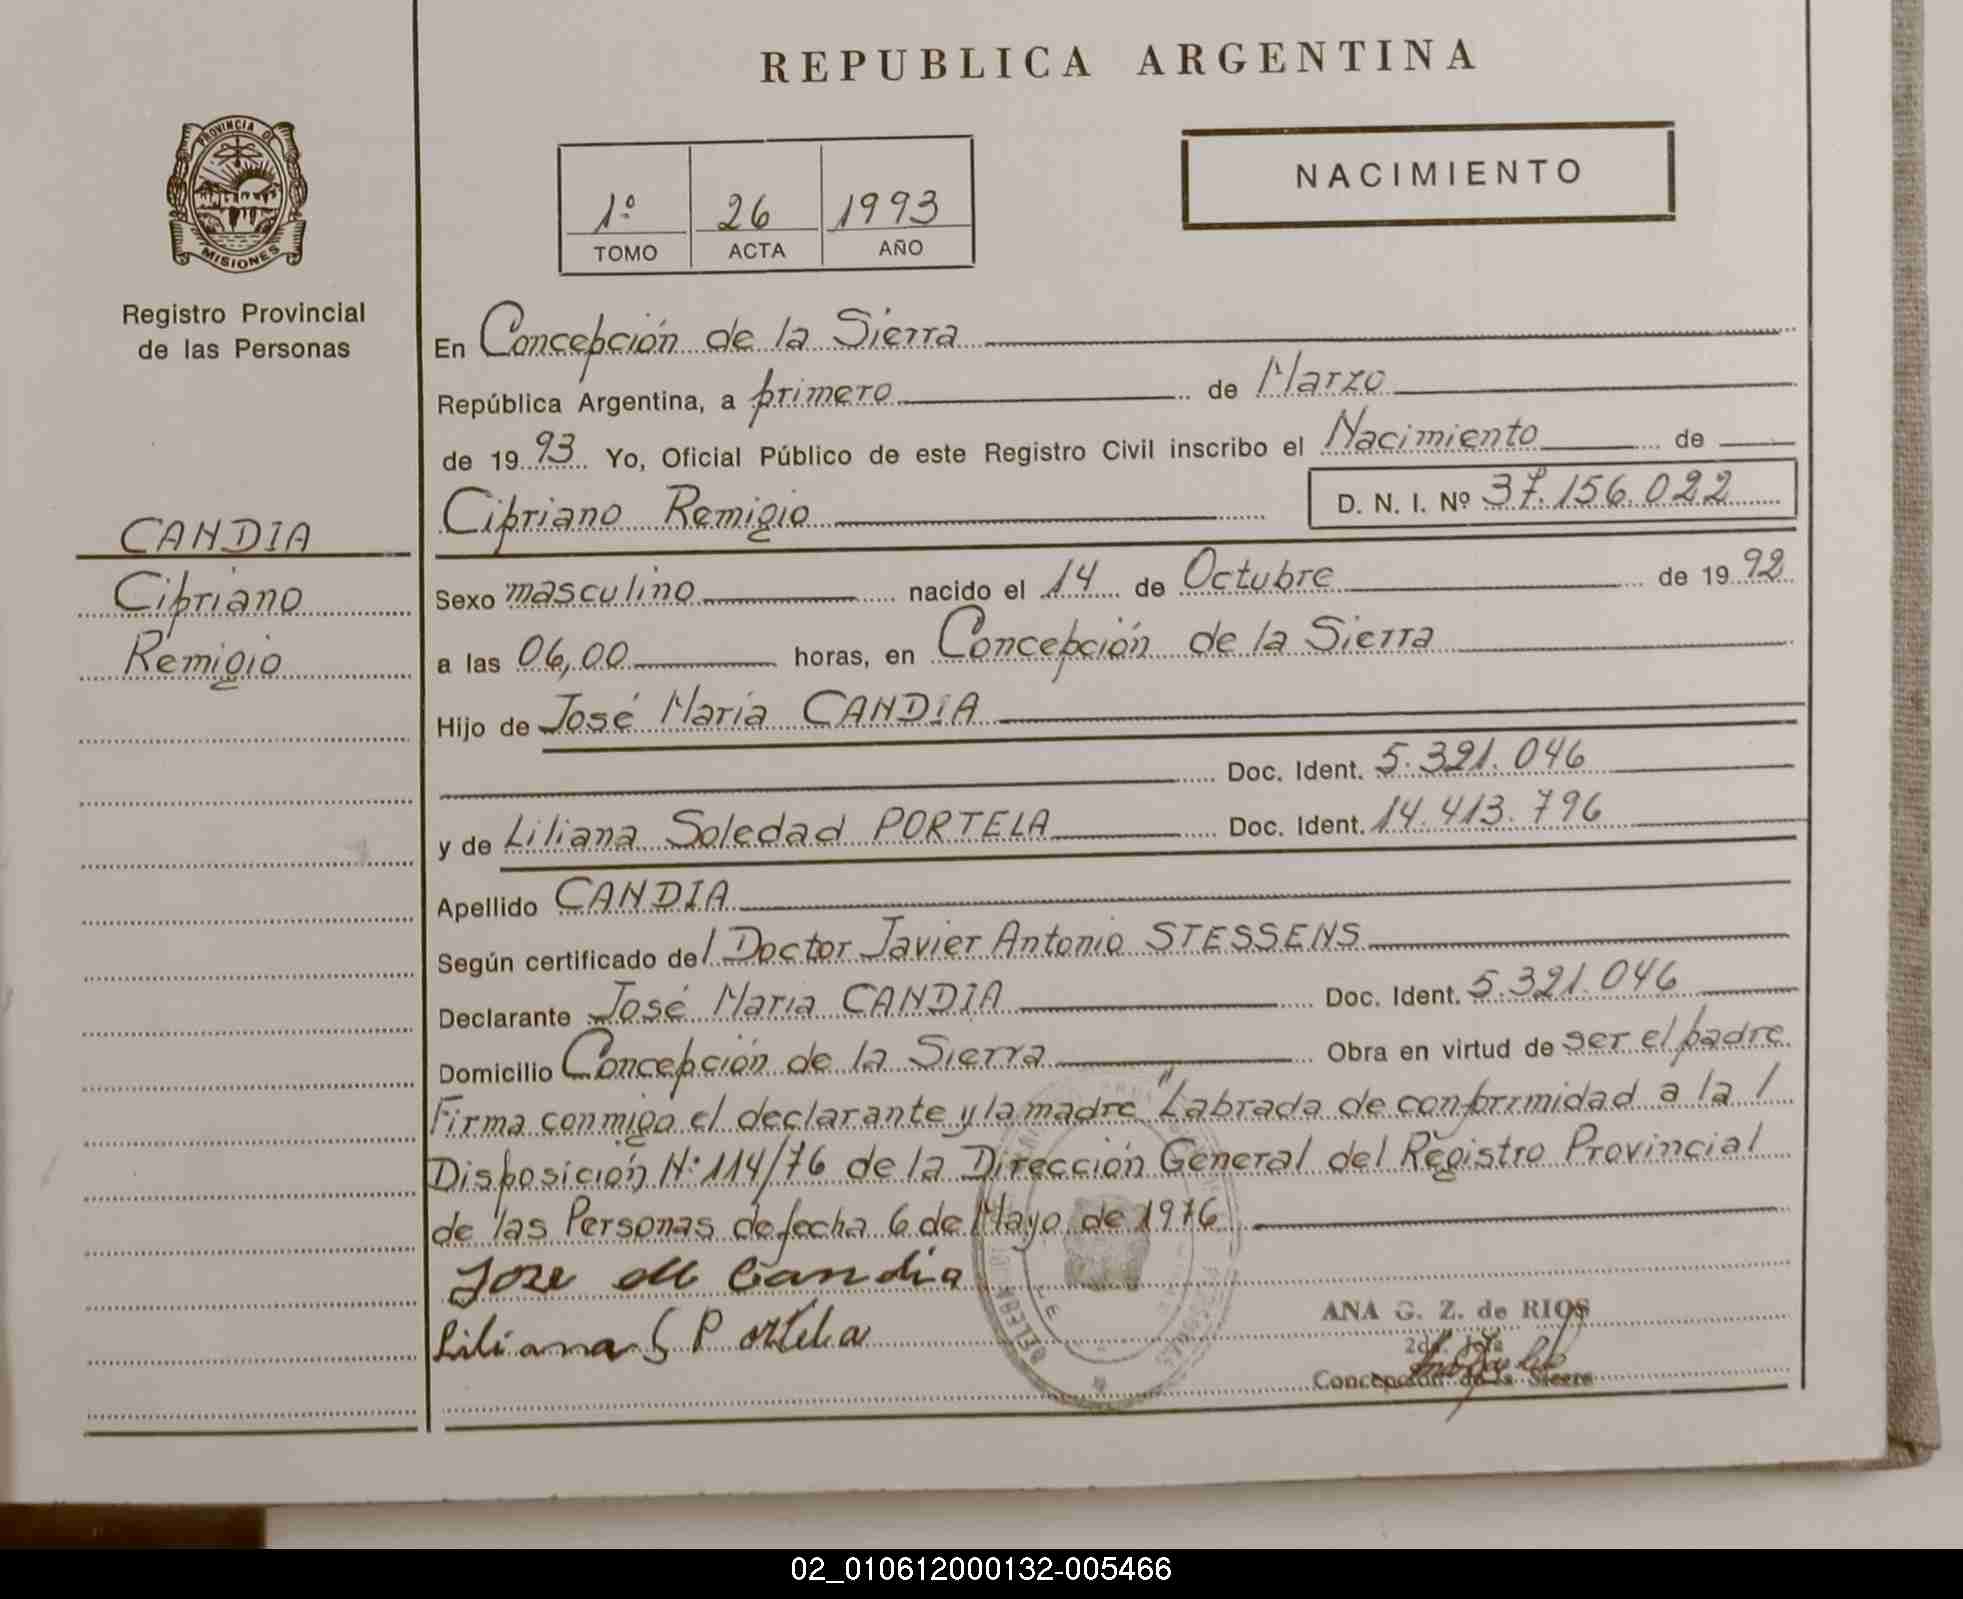 REPUBLICA ARGENTINA
PROVINCIA DE
MISIONES
Registro Provincial
de las Personas
1º 26 1993
TOMO ACTA AÑO
NACIMIENTO
CANDIA
Cipriano
Remigio
En Concepción de la Sierra
República Argentina, a primero de Marzo
de 1993 Yo, Oficial Público de este Registro Civil inscribo el Nacimiento de
Cipriano Remigio D. N. I. Nº 37.156.022
Sexo masculino nacido el 14 de Octubre de 1992
a las 06,00 horas, en Concepción de la Sierra
Hijo de José María CANDIA
Doc. Ident. 5.321.046
y de Liliana Soledad PORTELA Doc. Ident. 14.413.796
Apellido CANDIA
Según certificado del Doctor Javier Antonio STESSENS
Declarante José Maria CANDIA Doc. Ident. 5.321.046
Domicilio Concepción de la Sierra Obra en virtud de ser el padre
Firma conmigo el declarante y la madre "Labrada de conformidad a la /
Disposición Nº 114/76 de la Dirección General del Registro Provincial
de las Personas de fecha 6 de Mayo de 1976
Jose M Candia
Liliana S Portela
ANA G. Z. de RIOS
2da. Jefa
Concepción de la Sierra
02_010612000132-005466